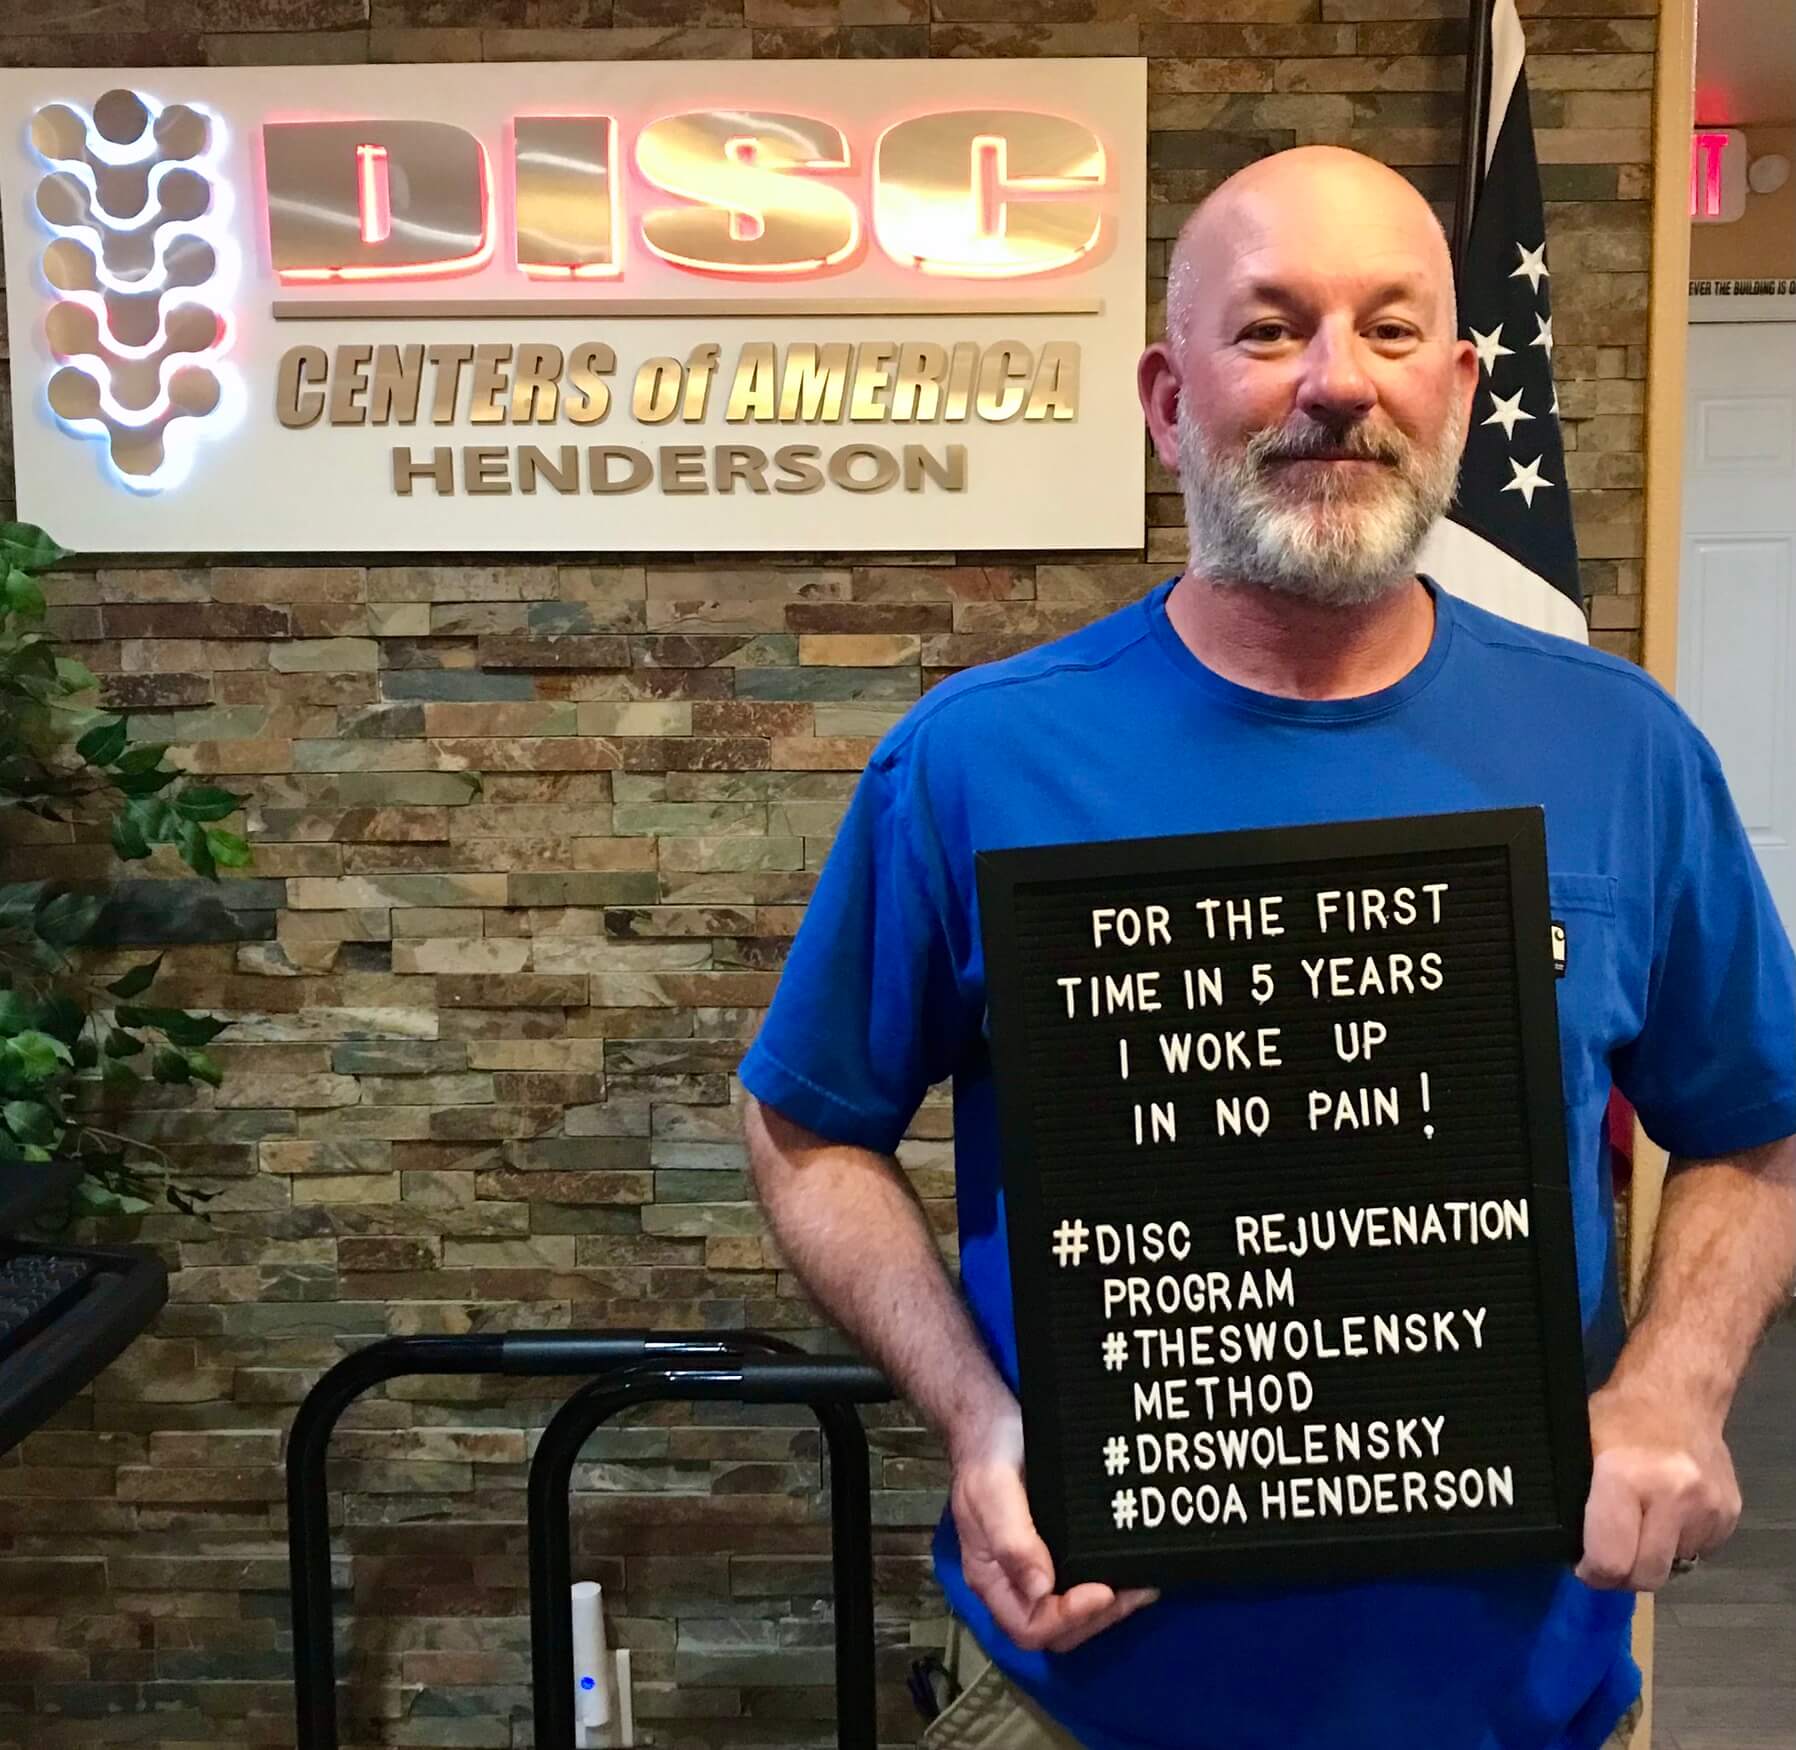 DISC
CENTERS of AMERICA
HENDERSON
IT
EVER THE BUILDING IS
FOR THE FIRST
TIME IN 5 YEARS
I WOKE UP
IN NO PAIN!
#DISC REJUVENATION
PROGRAM
#THESWOLENSKY
METHOD
#DRSWOLENSKY
#DCOA HENDERSON